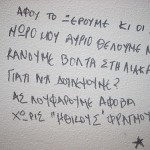 ΑΦΟΥ ΤΟ ΞΕΡΟΥΜΕ ΚΙ ΟΙ
ΜΩΡΟ ΜΟΥ ΑΥΡΙΟ ΘΕΛΟΥΜΕ Ν
ΚΑΝΟΥΜΕ ΒΟΛΤΑ ΣΤΗ ΛΙΑΚΑ
ΓΙΑΤΙ ΝΑ ΔΟΥΛΕΥΟΥΜΕ?
ΑΣ ΛΟΥΦΑΡΟΥΜΕ ΑΦΟΒΑ
ΧΩΡΙΣ "ΗΘΙΚΟΥΣ" ΦΡΑΓΜΟΥ